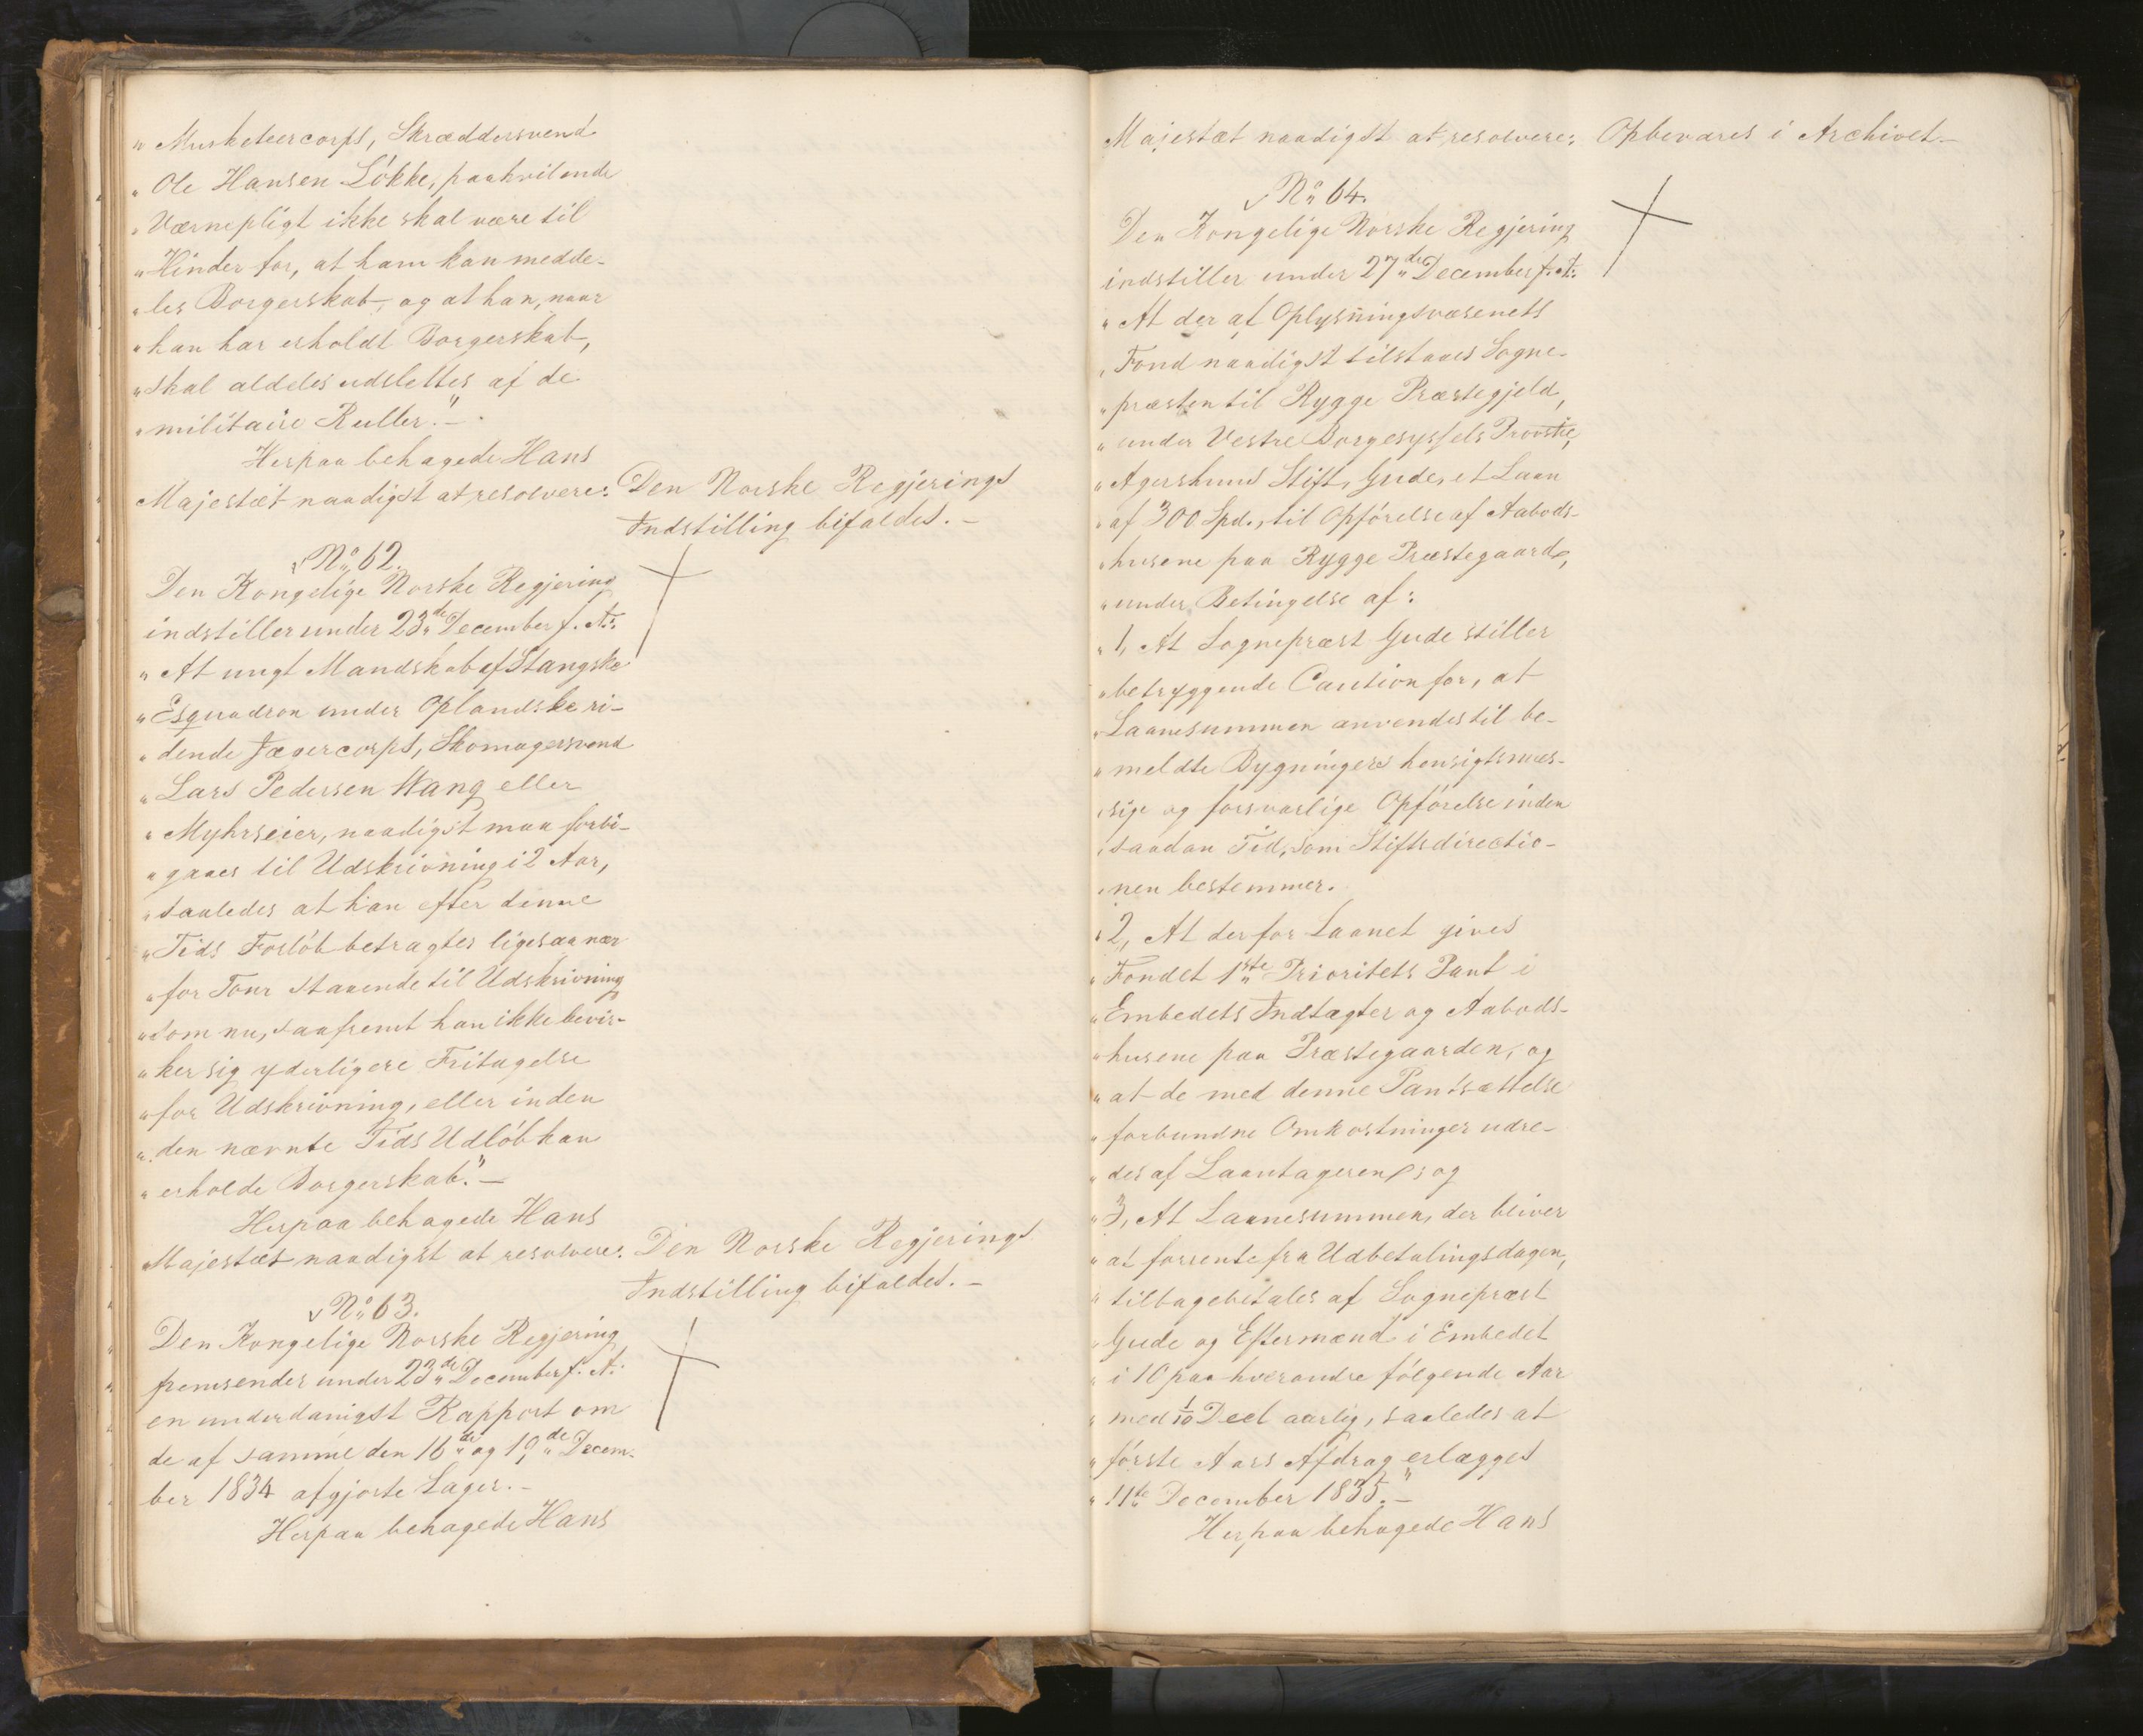 „ Musketeercorps, Skræddersvend
„ Ole Hansen Løkke, paahvilende
„ Værnepligt ikke skal være til
„ Hinder for, at ham kan medde-
„ les Borgerskab, og at han, naar
„ han har erholdt Borgerskab,
„ skal aldeles udslettes af de
„ militaire Ruller.“ –
Herpaa behagede Hans
Majestæt naadigst at resolvere:
Den Norske Regjerings
Indstilling bifaldes. –
No 62.
Den Kongelige Norske Regjering
indstiller under 23de December f. A.:
„ At ungt Mandskab af Stangske
„ Esquadron under Oplandske ri-
„ dende Jægercorps, Skomagersvend
„ Lars Pedersen Wang eller
„ Myhrseier, naadigst maa forbi-
„ gaaes til Udskrivning i 2 Aar,
„ saaledes at han efter denne
„ Tids Forløb betragtes ligesaa nær
„ for Tour staaende til Udskrivning
„ som nu, saafremt han ikke bevir-
„ ker sig yderligere Fritagelse
„ for Udskrivning, eller inden
„ den nævnte Tids Udløb kan
„ erholde Borgerskab.“ –
Herpaa behagede Hans
Majestæt naadigst at resolvere:
Den Norske Regjerings
Indstilling bifaldes. –
No 63.
Den Kongelige Norske Regjering
fremsender under 23de December f. A.
en underdanigst Rapport om
de af samme den 16de og 19de Decem-
ber 1834 afgjorte Sager. –
Herpaa behagede Hans
Majestæt naadigst at resolvere:
Opbevares i Archivet –
No 64.
Den Kongelige Norske Regjering
indstiller under 27de December f. A.:
„ At der af Oplysningsvæsenets
„ Fond naadigst tilstaaes Sogne-
„ præsten til Rygge Præstegjeld,
„ under Vestre Borgesyssels Provstie,
„ Agershuus Stift, Gude, et Laan
„ af 300 Spd., til Opførelse af Aabods-
„ husene paa Rygge Præstegaard,
„ under Betingelse af:
„ 1, At Sognepræst Gude stiller
„ betryggende Caution for, at
„ Laanesummen anvendes til be-
„ meldte Bygningers hensigtsmæs-
„ sige og forsvarlige Opførelse inden
„ saadan Tid, som Stiftsdirectio-
„ nen bestemmer.
„ 2, At der for Laanet gives
„ Fondet 1ste Prioritets Pant i
„ Embedets Indtægter og Aabods-
„ husene paa Præstegaarden, og
„ at de med denne Pantsættelse
„ forbundne Omkostninger udre-
„ des af Laantageren; og
„ 3, At Laanesummen, der bliver
„ at forrente fra Udbetalingsdagen,
„ tilbagebetales af Sognepræst
„ Gude og Eftermænd i Embedet
„ i 10 paa hverandre følgende Aar
„ med 1/10 Deel aarlig, saaledes at
„ første Aars Afdrag erlægges
„ 11te December 1835.“ –
Herpaa behagede Hans